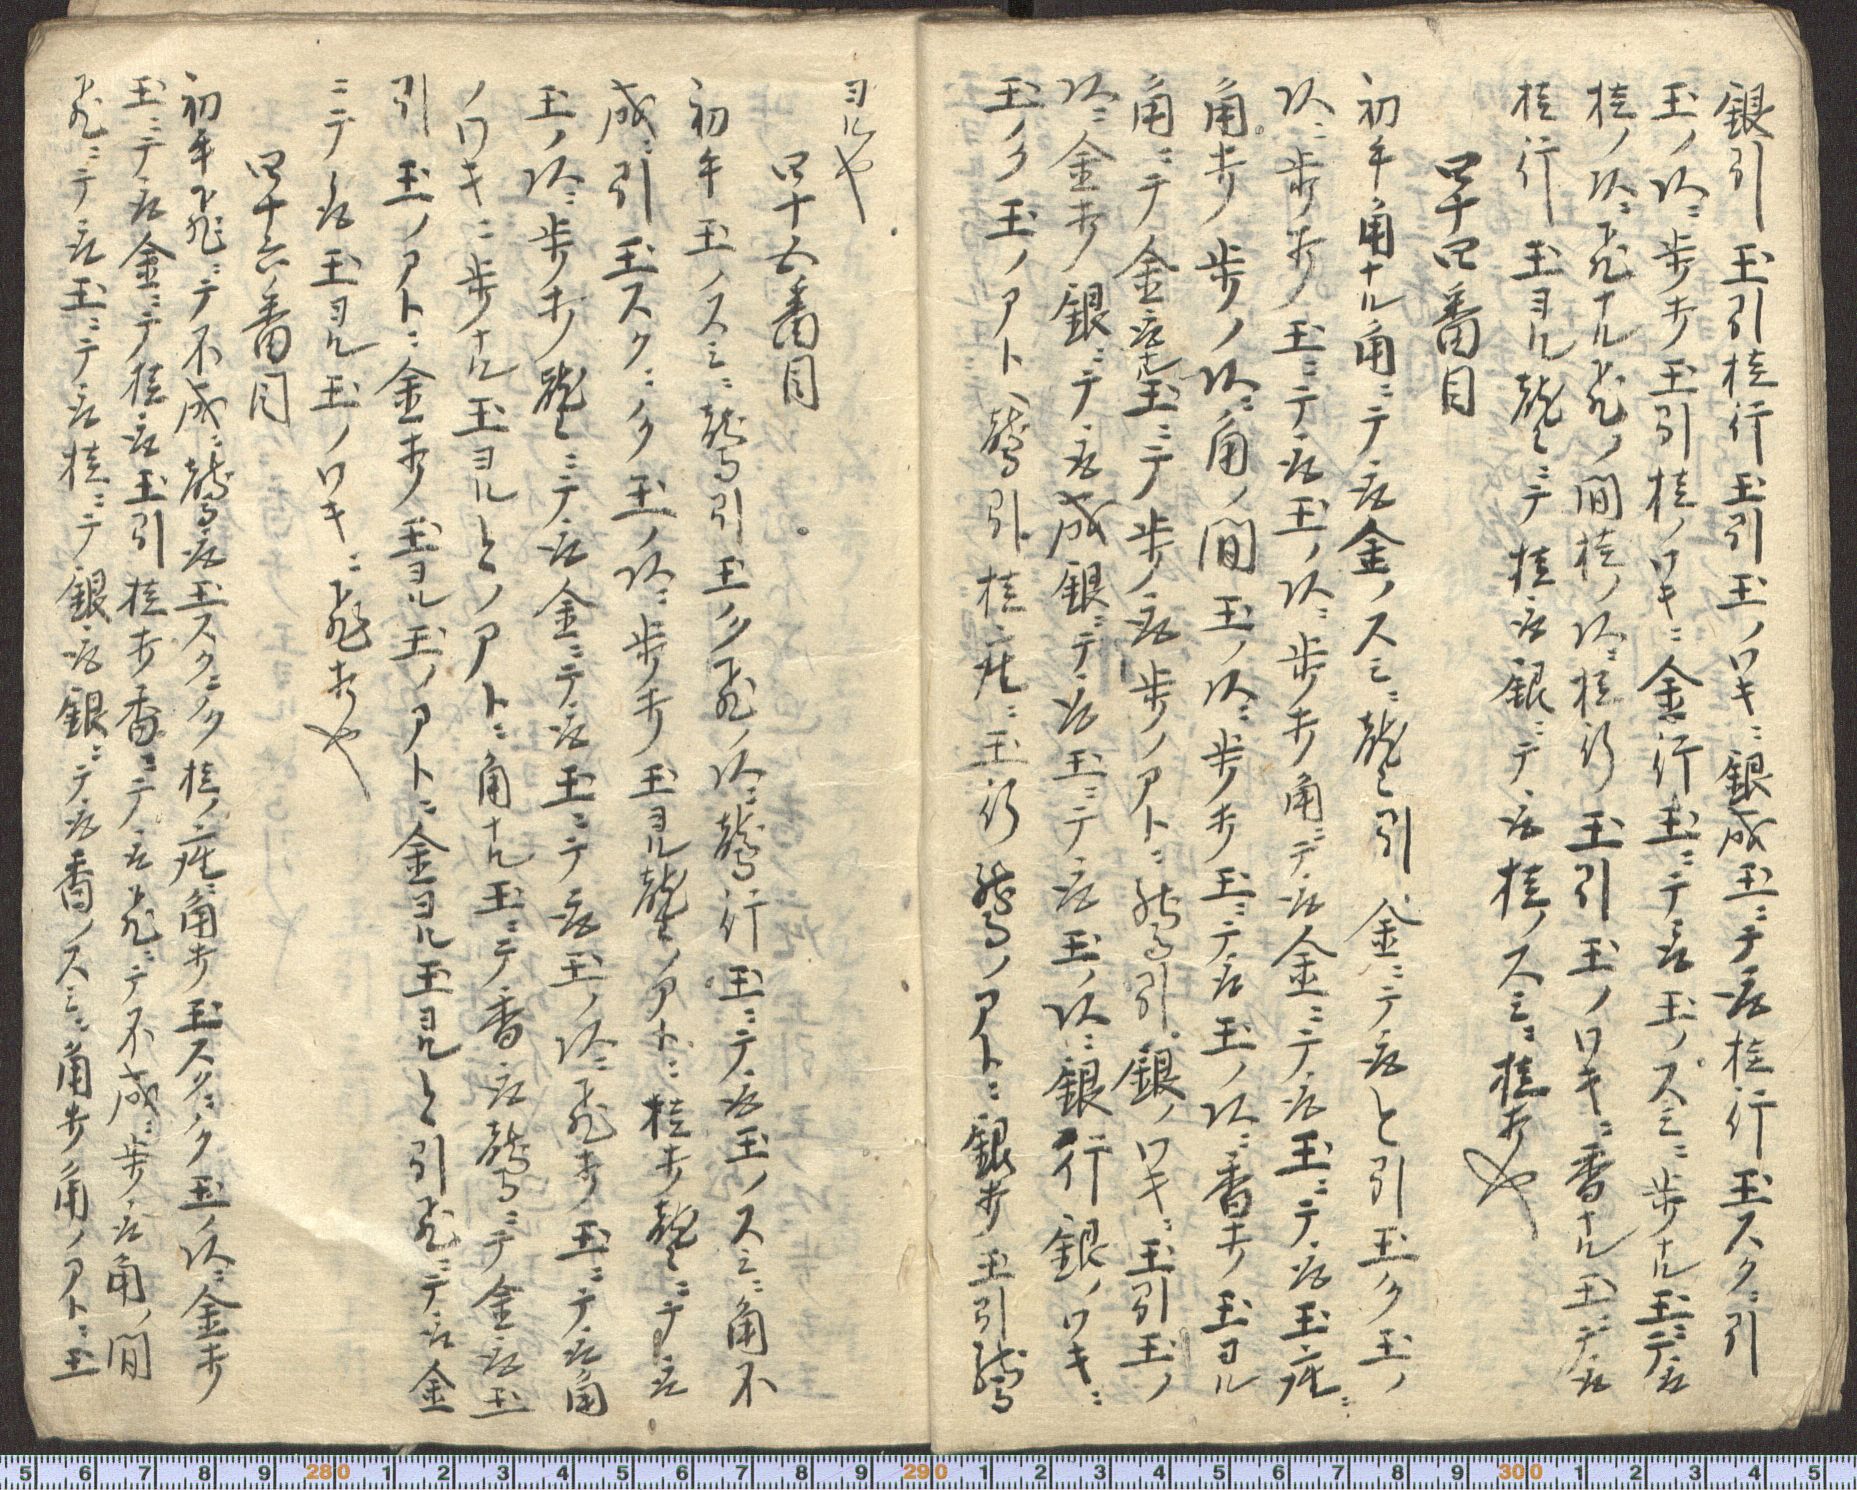 銀引玉引桂行玉引玉ノワキニ銀成玉ニテ取桂行玉スクニ引
玉ノ次ニ歩打玉引桂ノワキニ金行玉ニテ取玉ノスミニ歩ナル玉ニテ取
桂ノ次ニ飛ナル飛ノ間桂ノ次ニ桂行玉引玉ノワキニ香ナル玉ニテ取
桂行玉ヨル龍ニテ桂取銀ニテ取桂ノスミニ桂打也
四十四番目
初手角ナル角ニテ取金ノスミニ龍引金ニテ取と引玉ノク玉ノ
次ニ歩打玉ニテ取玉ノ次ニ歩打角ニテ取金ニテ取玉ニテ取玉尻ニ
角打歩ノ次ニ角ノ間玉ノ次ニ歩打玉ニテ取玉ノ次ニ香打玉ヨル
角ニテ金取玉ニテ歩ノ取歩ノアトニ馬引銀ノワキニ玉引玉ノ
次ニ金打銀ニテ取成銀ニテ取玉ニテ取玉ノ次ニ銀行銀ノワキニ
玉ノク玉ノアトヘ馬引桂尻ニ玉行馬ノアトニ銀打玉引馬
ヨル也
四十五番目
初手玉ノスミニ馬引玉ノク飛ノ次ニ馬行玉ニテ取玉ノスミニ角不
成ニ引玉スクニノク玉ノ次ニ歩打玉ヨル龍ノアトニ桂打龍ニテ取
玉ノ次ニ歩打龍ニテ取金ニテ取玉ニテ取玉ノ次ニ飛打玉ニテ取角
ノワキニ歩ナル玉ヨルとノアトニ角ナル玉ニテ香取馬ニテ金取玉
引玉ノアトニ金打玉ヨル玉ノアトニ金ヨル玉ヨルと引飛ニテ取金
ニテ取玉ヨル玉ノワキニ飛打也
四十六番目
初手飛ニテ不成ニ馬取玉スクニノク桂ノ尻ニ角打玉スクニノク玉ノ次ニ金打
玉ニテ取金ニテ桂取玉引桂打香ニテ取飛ニテ不成ニ歩取角ノ間
飛ニテ取玉ニテ取桂ニテ銀取銀ニテ取香ノスミニ角打角ノアトニ玉